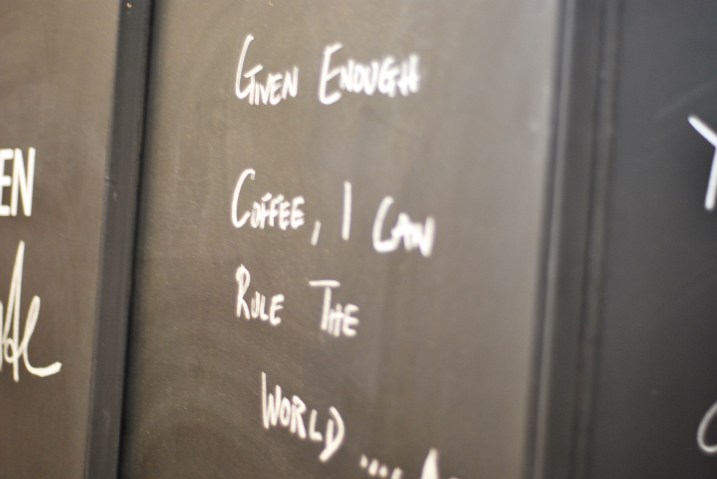 GIVEN ENOUGH
COFFEE, I CAN
RULE THE
WORLD....
EN